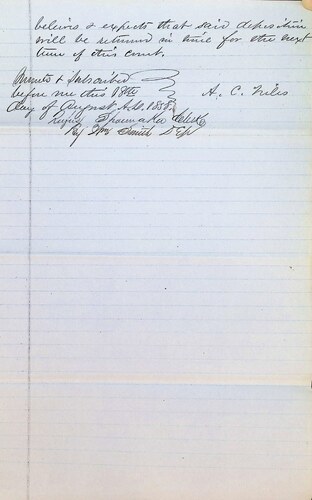 believes & expects that said deposition
will be returned in time for the next
term of this court.
Sworn to & Subscribed
before me this 18th
A. C. Niles
day of August A.D. 1858
Shoemaker Clerk
By Wm Smith Dep